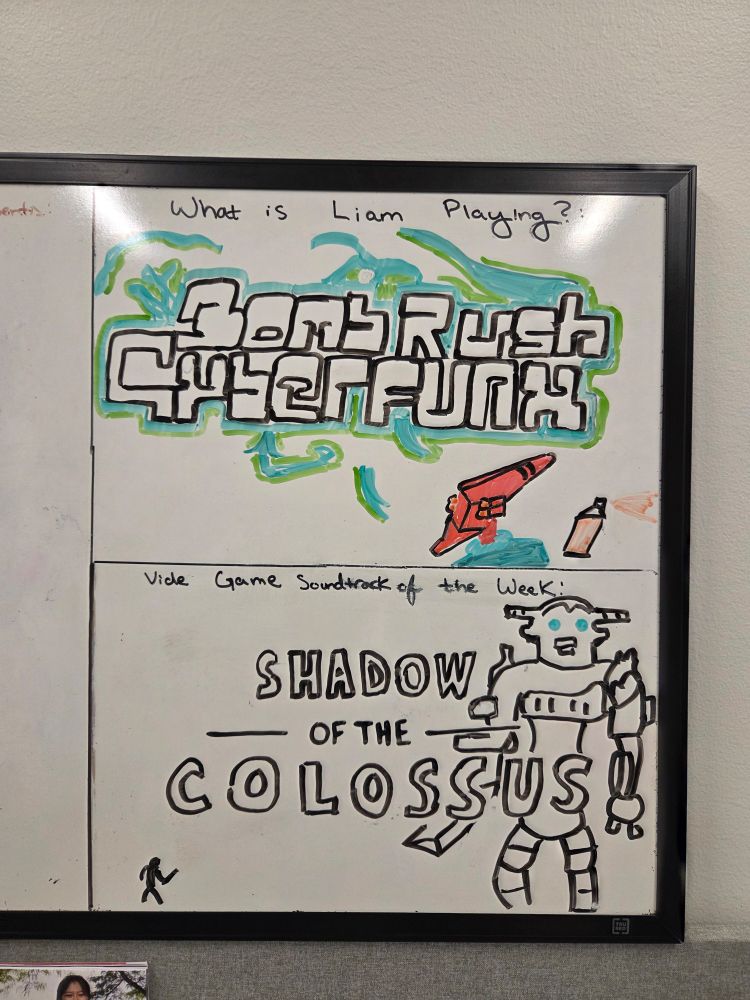 What is Liam Playing?:
Bomb Rush
Cyberfunk
Vide Game Soundtrack of the Week:
SHADOW
OF THE
COLOSSUS